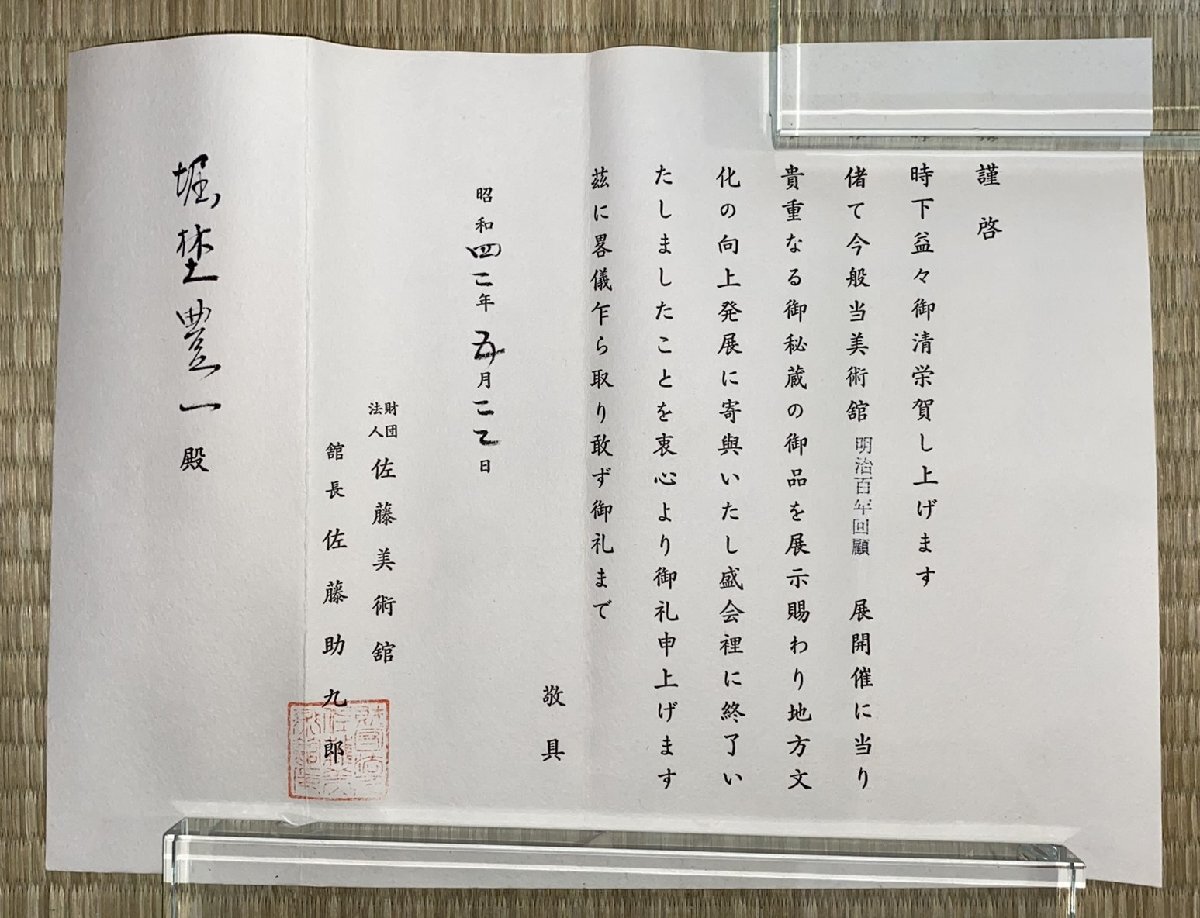 謹啓
時下益々御清栄賀し上げます
偖て今般当美術舘 明治百年回顧 展開催に当り
貴重なる御秘蔵の御品を展示賜わり地方文
化の向上発展に寄與いたし盛会裡に終了い
たしましたことを衷心より御礼申上げます
茲に畧儀乍ら取り敢ず御礼まで
敬具
昭和四二年五月二乙日
財団法人 佐藤美術舘
舘長 佐藤助九郎
堀埜豊一殿